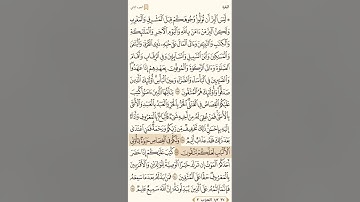 البقرة
الجزء الثاني
۞ لَّيْسَ ٱلْبِرَّ أَن تُوَلُّوا۟ وُجُوهَكُمْ قِبَلَ ٱلْمَشْرِقِ وَٱلْمَغْرِبِ
وَلَٰكِنَّ ٱلْبِرَّ مَنْ ءَامَنَ بِٱللَّهِ وَٱلْيَوْمِ ٱلْءَاخِرِ وَٱلْمَلَٰٓئِكَةِ
وَٱلْكِتَٰبِ وَٱلنَّبِيِّـۧنَ وَءَاتَى ٱلْمَالَ عَلَىٰ حُبِّهِۦ ذَوِى ٱلْقُرْبَىٰ وَٱلْيَتَٰمَىٰ
وَٱلْمَسَٰكِينَ وَٱبْنَ ٱلسَّبِيلِ وَٱلسَّآئِلِينَ وَفِى ٱلرِّقَابِ وَأَقَامَ
ٱلصَّلَوٰةَ وَءَاتَى ٱلزَّكَوٰةَ وَٱلْمُوفُونَ بِعَهْدِهِمْ إِذَا عَٰهَدُوا۟
وَٱلصَّٰبِرِينَ فِى ٱلْبَأْسَآءِ وَٱلضَّرَّآءِ وَحِينَ ٱلْبَأْسِ أُو۟لَٰٓئِكَ ٱلَّذِينَ
صَدَقُوا۟ وَأُو۟لَٰٓئِكَ هُمُ ٱلْمُتَّقُونَ ١٧٧ يَٰٓأَيُّهَا ٱلَّذِينَ ءَامَنُوا۟ كُتِبَ
عَلَيْكُمُ ٱلْقِصَاصُ فِى ٱلْقَتْلَى ٱلْحُرُّ بِٱلْحُرِّ وَٱلْعَبْدُ بِٱلْعَبْدِ وَٱلْأُنثَىٰ
بِٱلْأُنثَىٰ فَمَنْ عُفِىَ لَهُۥ مِنْ أَخِيهِ شَىْءٌ فَٱتِّبَاعٌۢ بِٱلْمَعْرُوفِ وَأَدَآءٌ
إِلَيْهِ بِإِحْسَٰنٍ ذَٰلِكَ تَخْفِيفٌ مِّن رَّبِّكُمْ وَرَحْمَةٌ فَمَنِ ٱعْتَدَىٰ
بَعْدَ ذَٰلِكَ فَلَهُۥ عَذَابٌ أَلِيمٌ ١٧٨ وَلَكُمْ فِى ٱلْقِصَاصِ حَيَوٰةٌ يَٰٓأُو۟لِى
ٱلْأَلْبَٰبِ لَعَلَّكُمْ تَتَّقُونَ ١٧٩ كُتِبَ عَلَيْكُمْ إِذَا حَضَرَ
أَحَدَكُمُ ٱلْمَوْتُ إِن تَرَكَ خَيْرًا ٱلْوَصِيَّةُ لِلْوَٰلِدَيْنِ وَٱلْأَقْرَبِينَ
بِٱلْمَعْرُوفِ حَقًّا عَلَى ٱلْمُتَّقِينَ ١٨٠ فَمَنۢ بَدَّلَهُۥ بَعْدَمَا سَمِعَهُۥ
فَإِنَّمَآ إِثْمُهُۥ عَلَى ٱلَّذِينَ يُبَدِّلُونَهُۥٓ إِنَّ ٱللَّهَ سَمِيعٌ عَلِيمٌ ١٨١